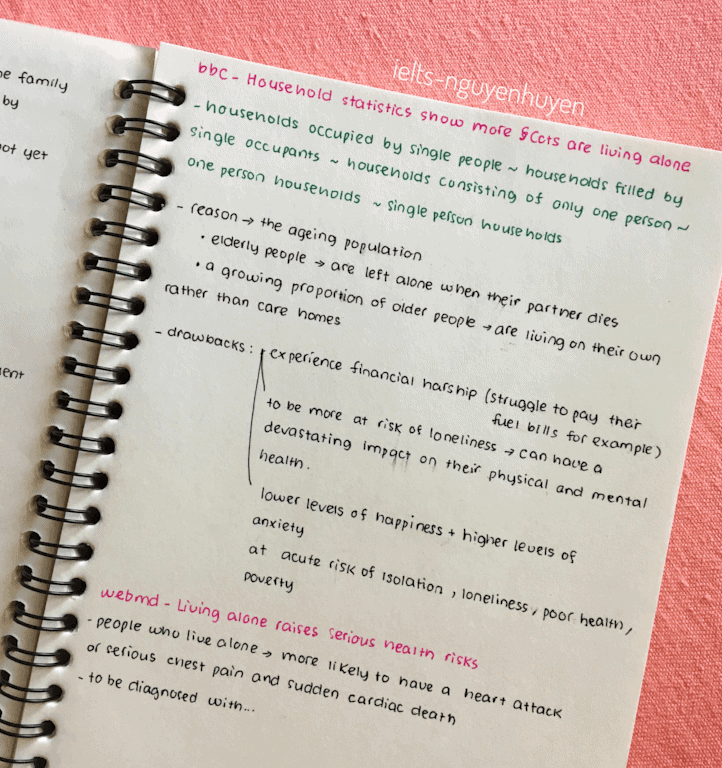 ne family
by
ot yet
ent
ielts-nguyenhuyen
bbc - Household statistics show more Scots are living alone
- households occupied by single people ~ households filled by
single occupants ~ households consisting of only one person ~
one person households ~ single person households
- reason → the ageing population
• elderly people → are left alone when their partner dies
• a growing proportion of older people → are living on their own
rather than care homes
- drawbacks: experience financial harship (struggle to pay their
fuel bills for example)
to be more at risk of loneliness → can have a
devastating impact on their physical and mental
health.
lower levels of happiness + higher levels of
anxiety
at acute risk of isolation, loneliness, poor health,
poverty
webmd - Living alone raises serious health risks
- people who live alone → more likely to have a heart attack
or serious chest pain and sudden cardiac death
- to be diagnosed with...